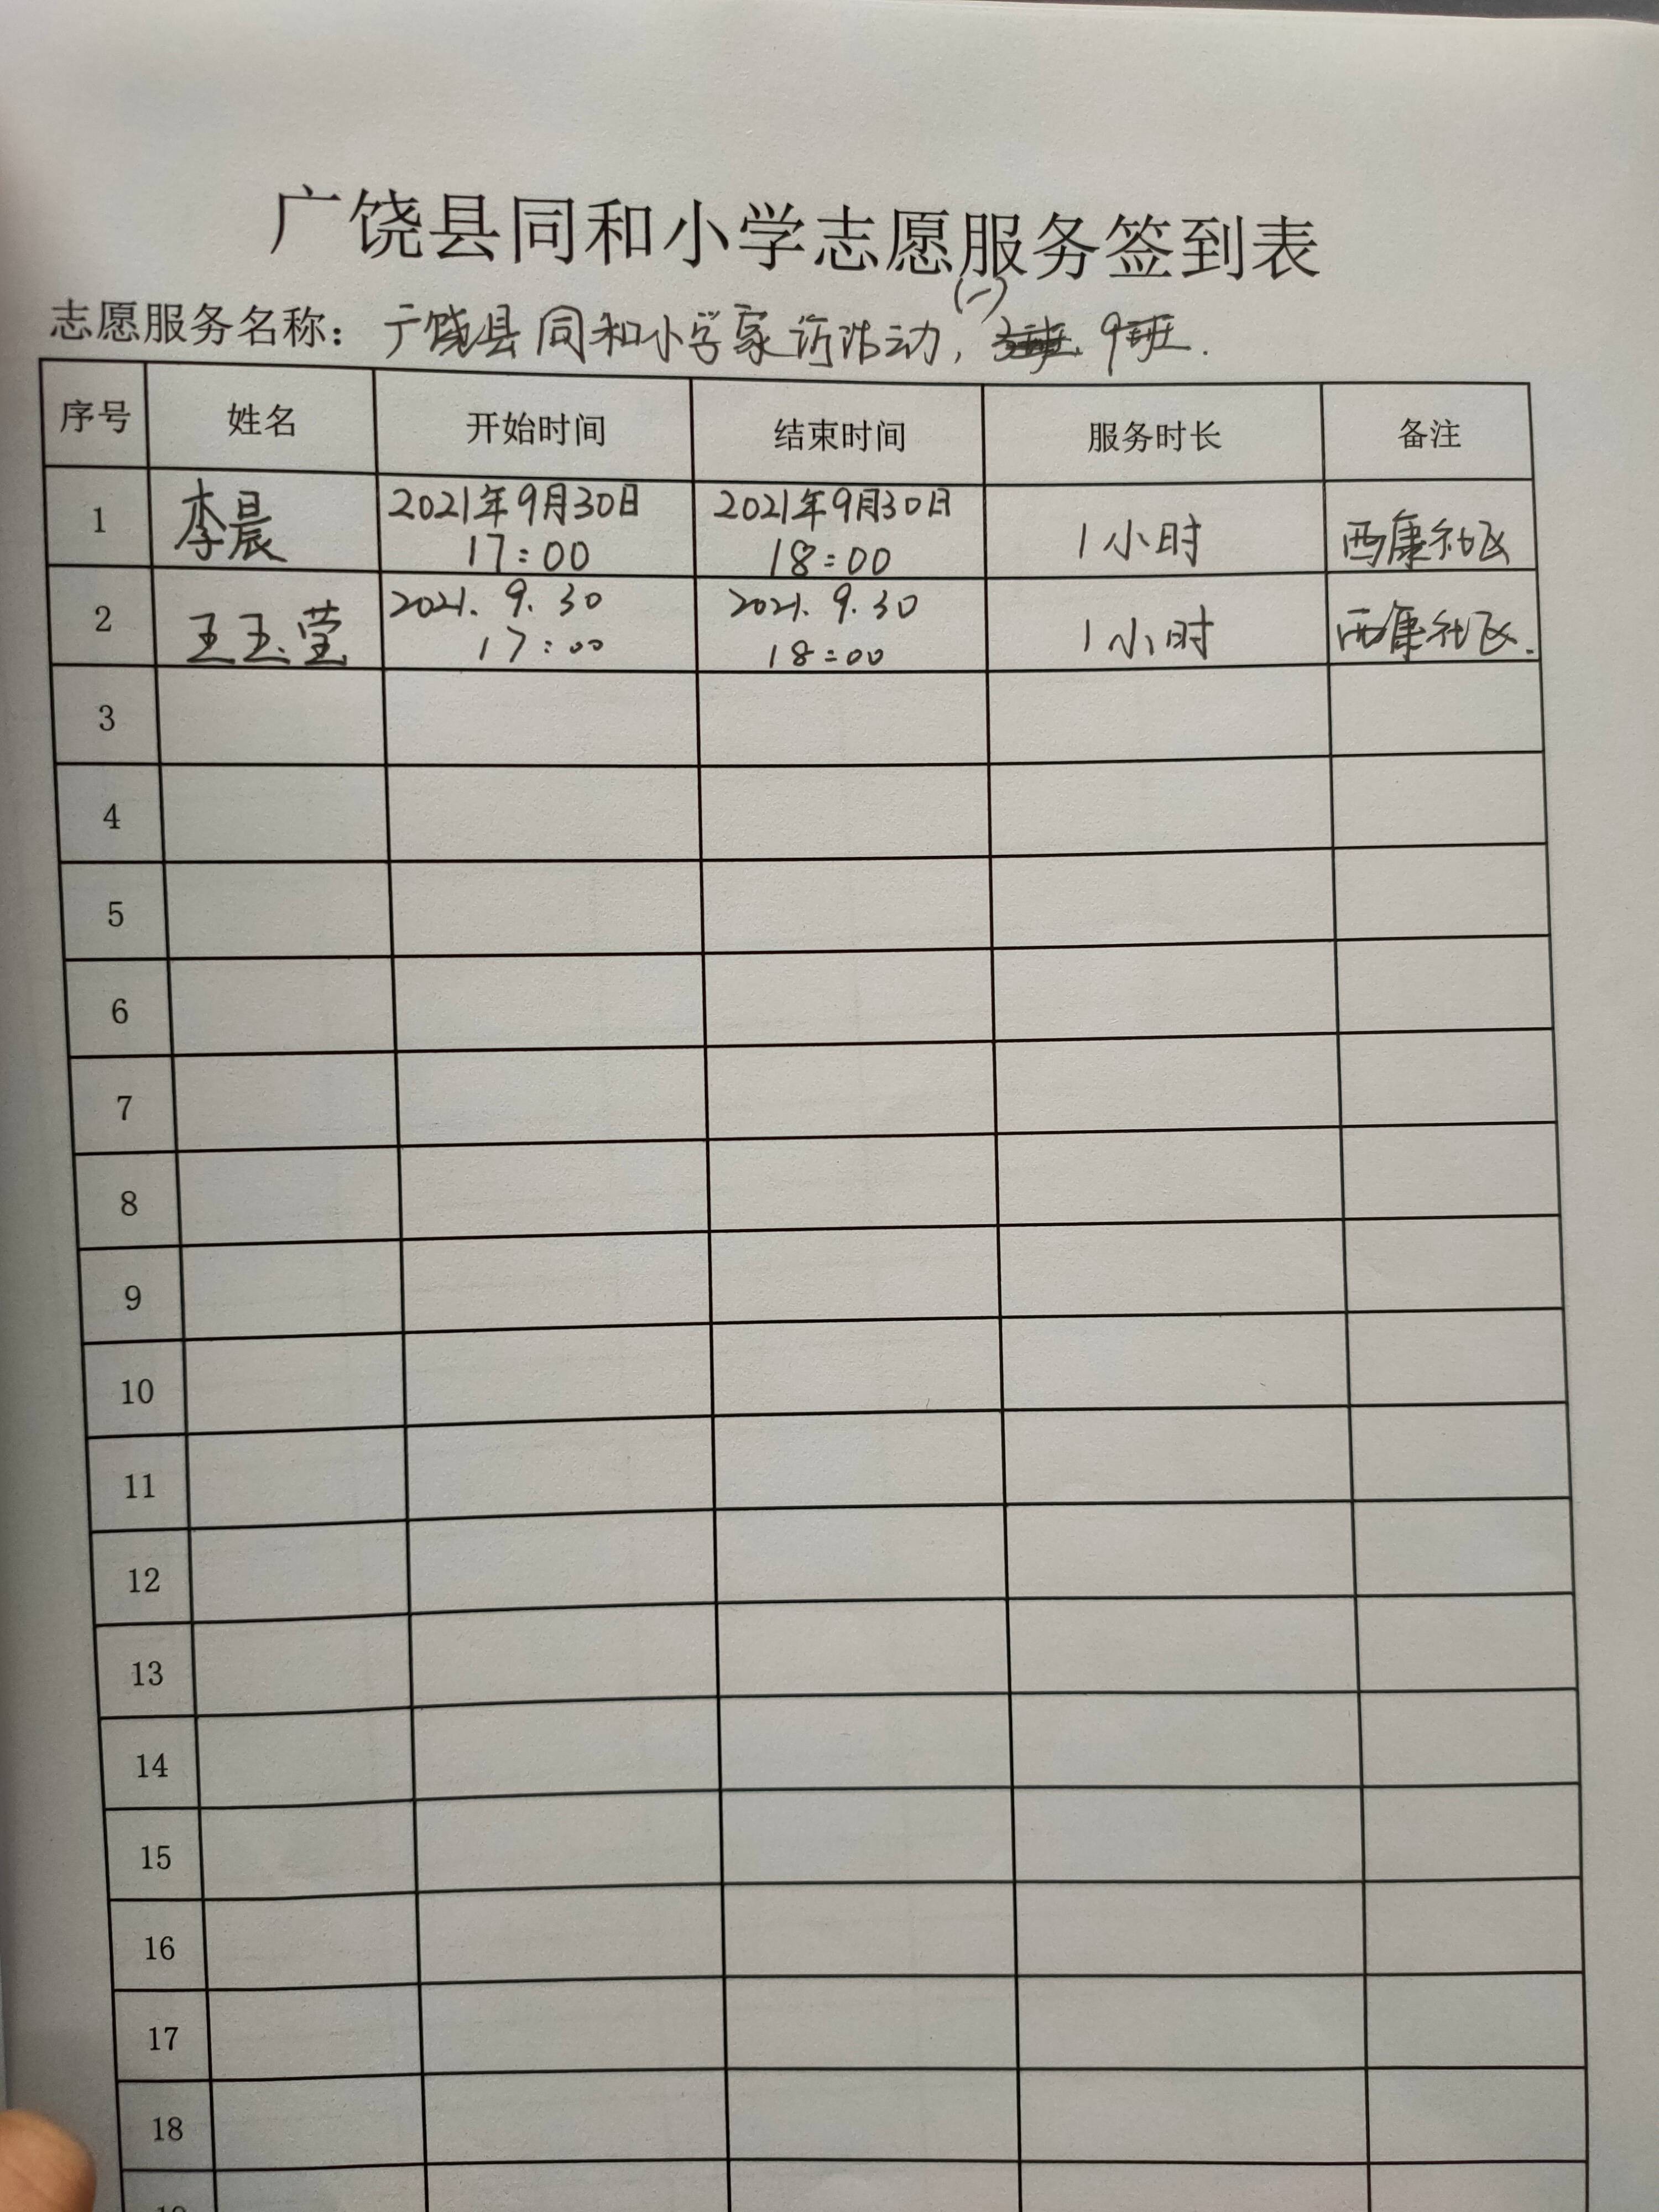 广饶县同和小学志愿服务签到表
志愿服务名称：广饶县同和小学家访活动，(一) 9班.
序号 姓名 开始时间 结束时间 服务时长 备注
1 李晨 2021年9月30日 17:00 2021年9月30日 18:00 1小时 西康社区
2 王玉莹 2021.9.30 17:00 2021.9.30 18:00 1小时 西康社区.
3
4
5
6
7
8
9
10
11
12
13
14
15
16
17
18